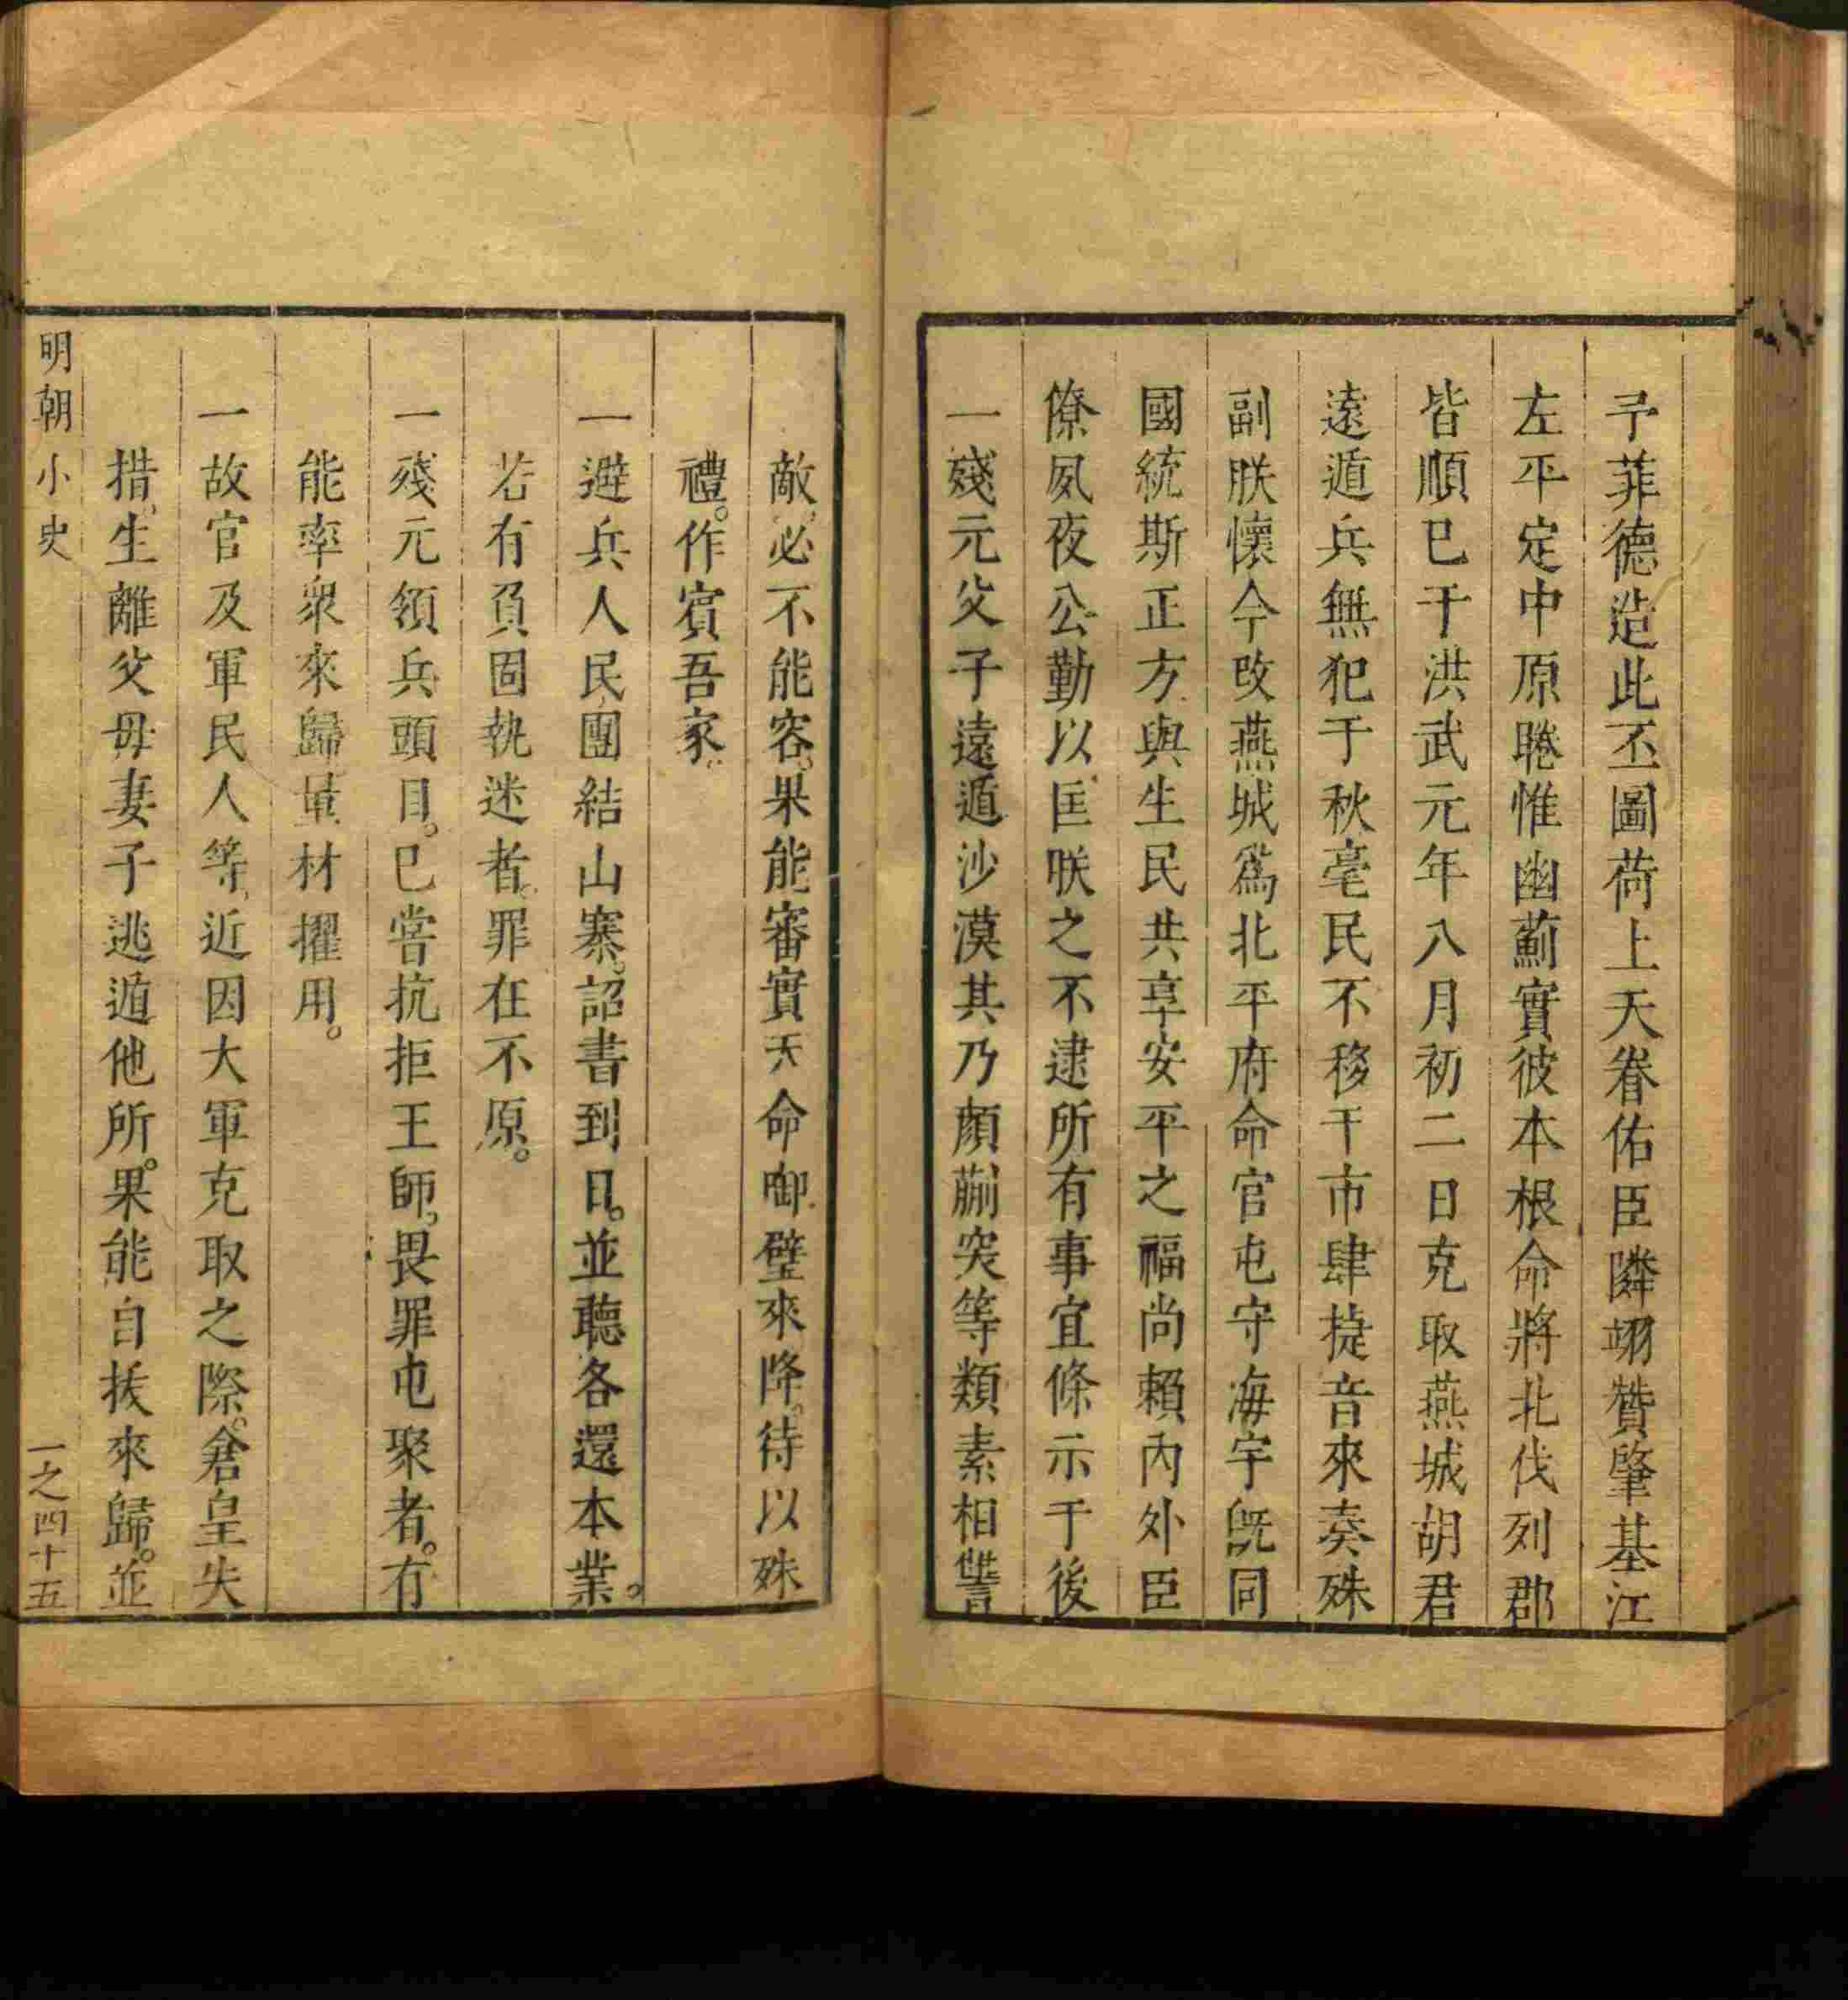 予菲德造此丕圖荷上天眷佑臣隣翊贊肇基江
左平定中原睠惟幽薊實彼本根命將北伐列郡
皆順已于洪武元年八月初二日克取燕城胡君
遠遁兵無犯于秋毫民不移于市肆捷音來奏殊
副朕懷今改燕城爲北平府命官屯守海宇既同
國統斯正方與生民共享安平之福尚賴內外臣
僚夙夜公勤以匡朕之不逮所有事宜條示于後
一殘元父子遠遁沙漠其乃顏蒯突等類素相讐
敵必不能容。果能審實天命啣璧來降。待以殊
禮。作賓吾家。
一避兵人民團結山寨。詔書到日。並聽各還本業。
若有負固執迷者。罪在不原。
一殘元領兵頭目。已嘗抗拒王師。畏罪屯聚者。有
能率衆來歸量材擢用。
一故官及軍民人等、近因大軍克取之際。倉皇失
措。生離父母妻子逃遁他所。果能自拔來歸。並
明朝小史
一之四十五